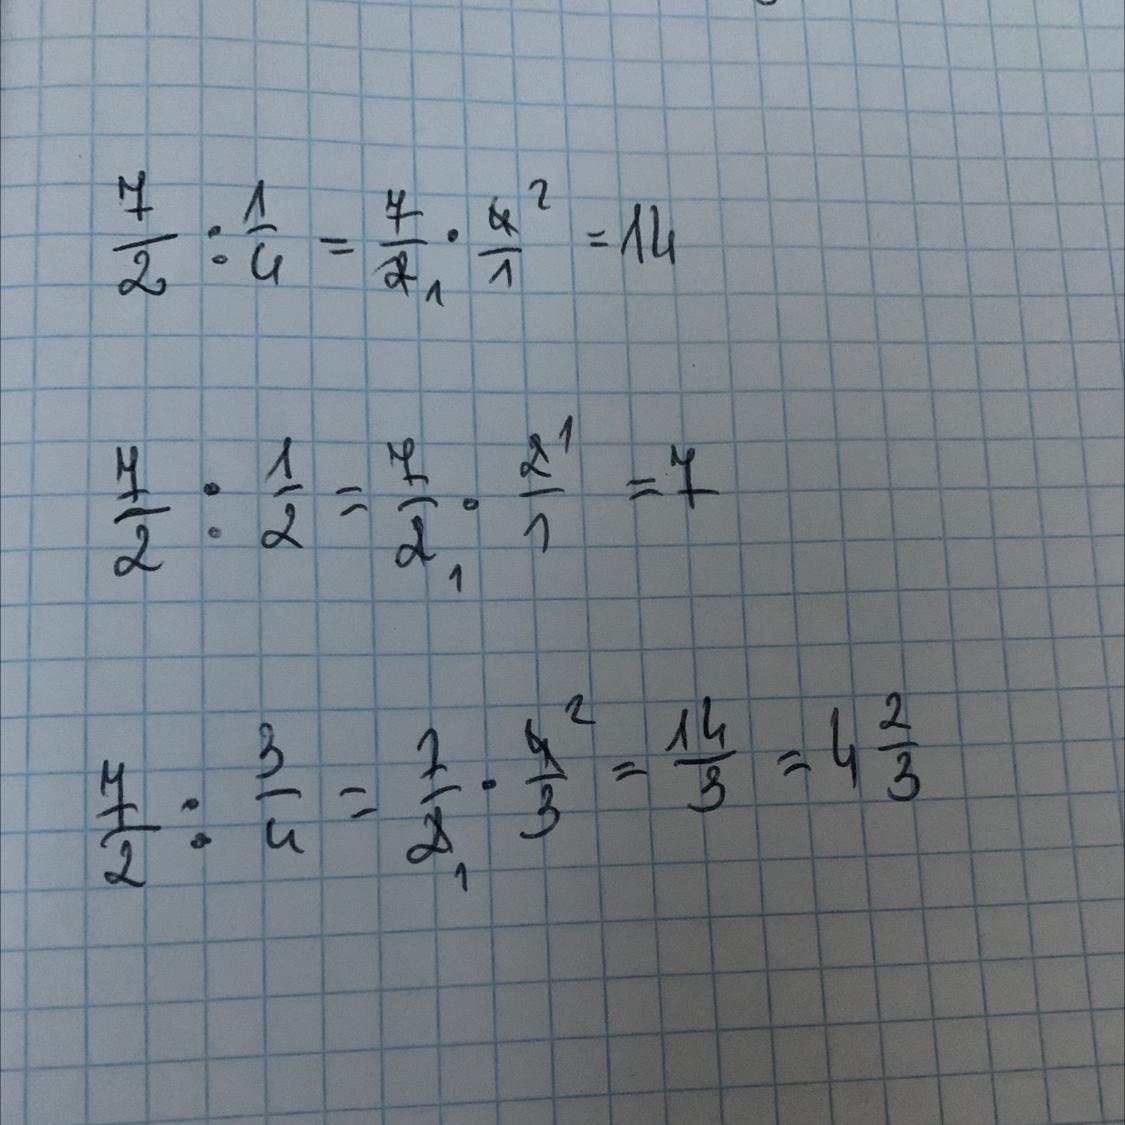 7/2 : 1/4 = 7/2 1 · 4/1 2 = 14
7/2 : 1/2 = 7/2 1 · 2/1 1 = 7
7/2 : 3/4 = 7/2 1 · 4/3 2 = 14/3 = 4 2/3